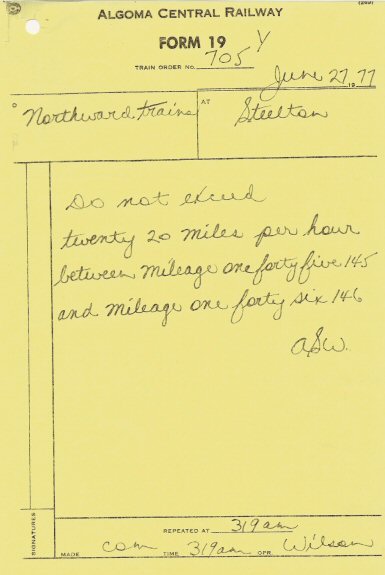 ALGOMA CENTRAL RAILWAY
FORM 19 Y
TRAIN ORDER NO. 705
June 27, 1977
Northward trains AT Steelton
Do not exceed
twenty 20 miles per hour
between mileage one forty five 145
and mileage one forty six 146
ASW.
SIGNATURES
REPEATED AT 319 am
MADE com TIME 319 am OPR. Wilson